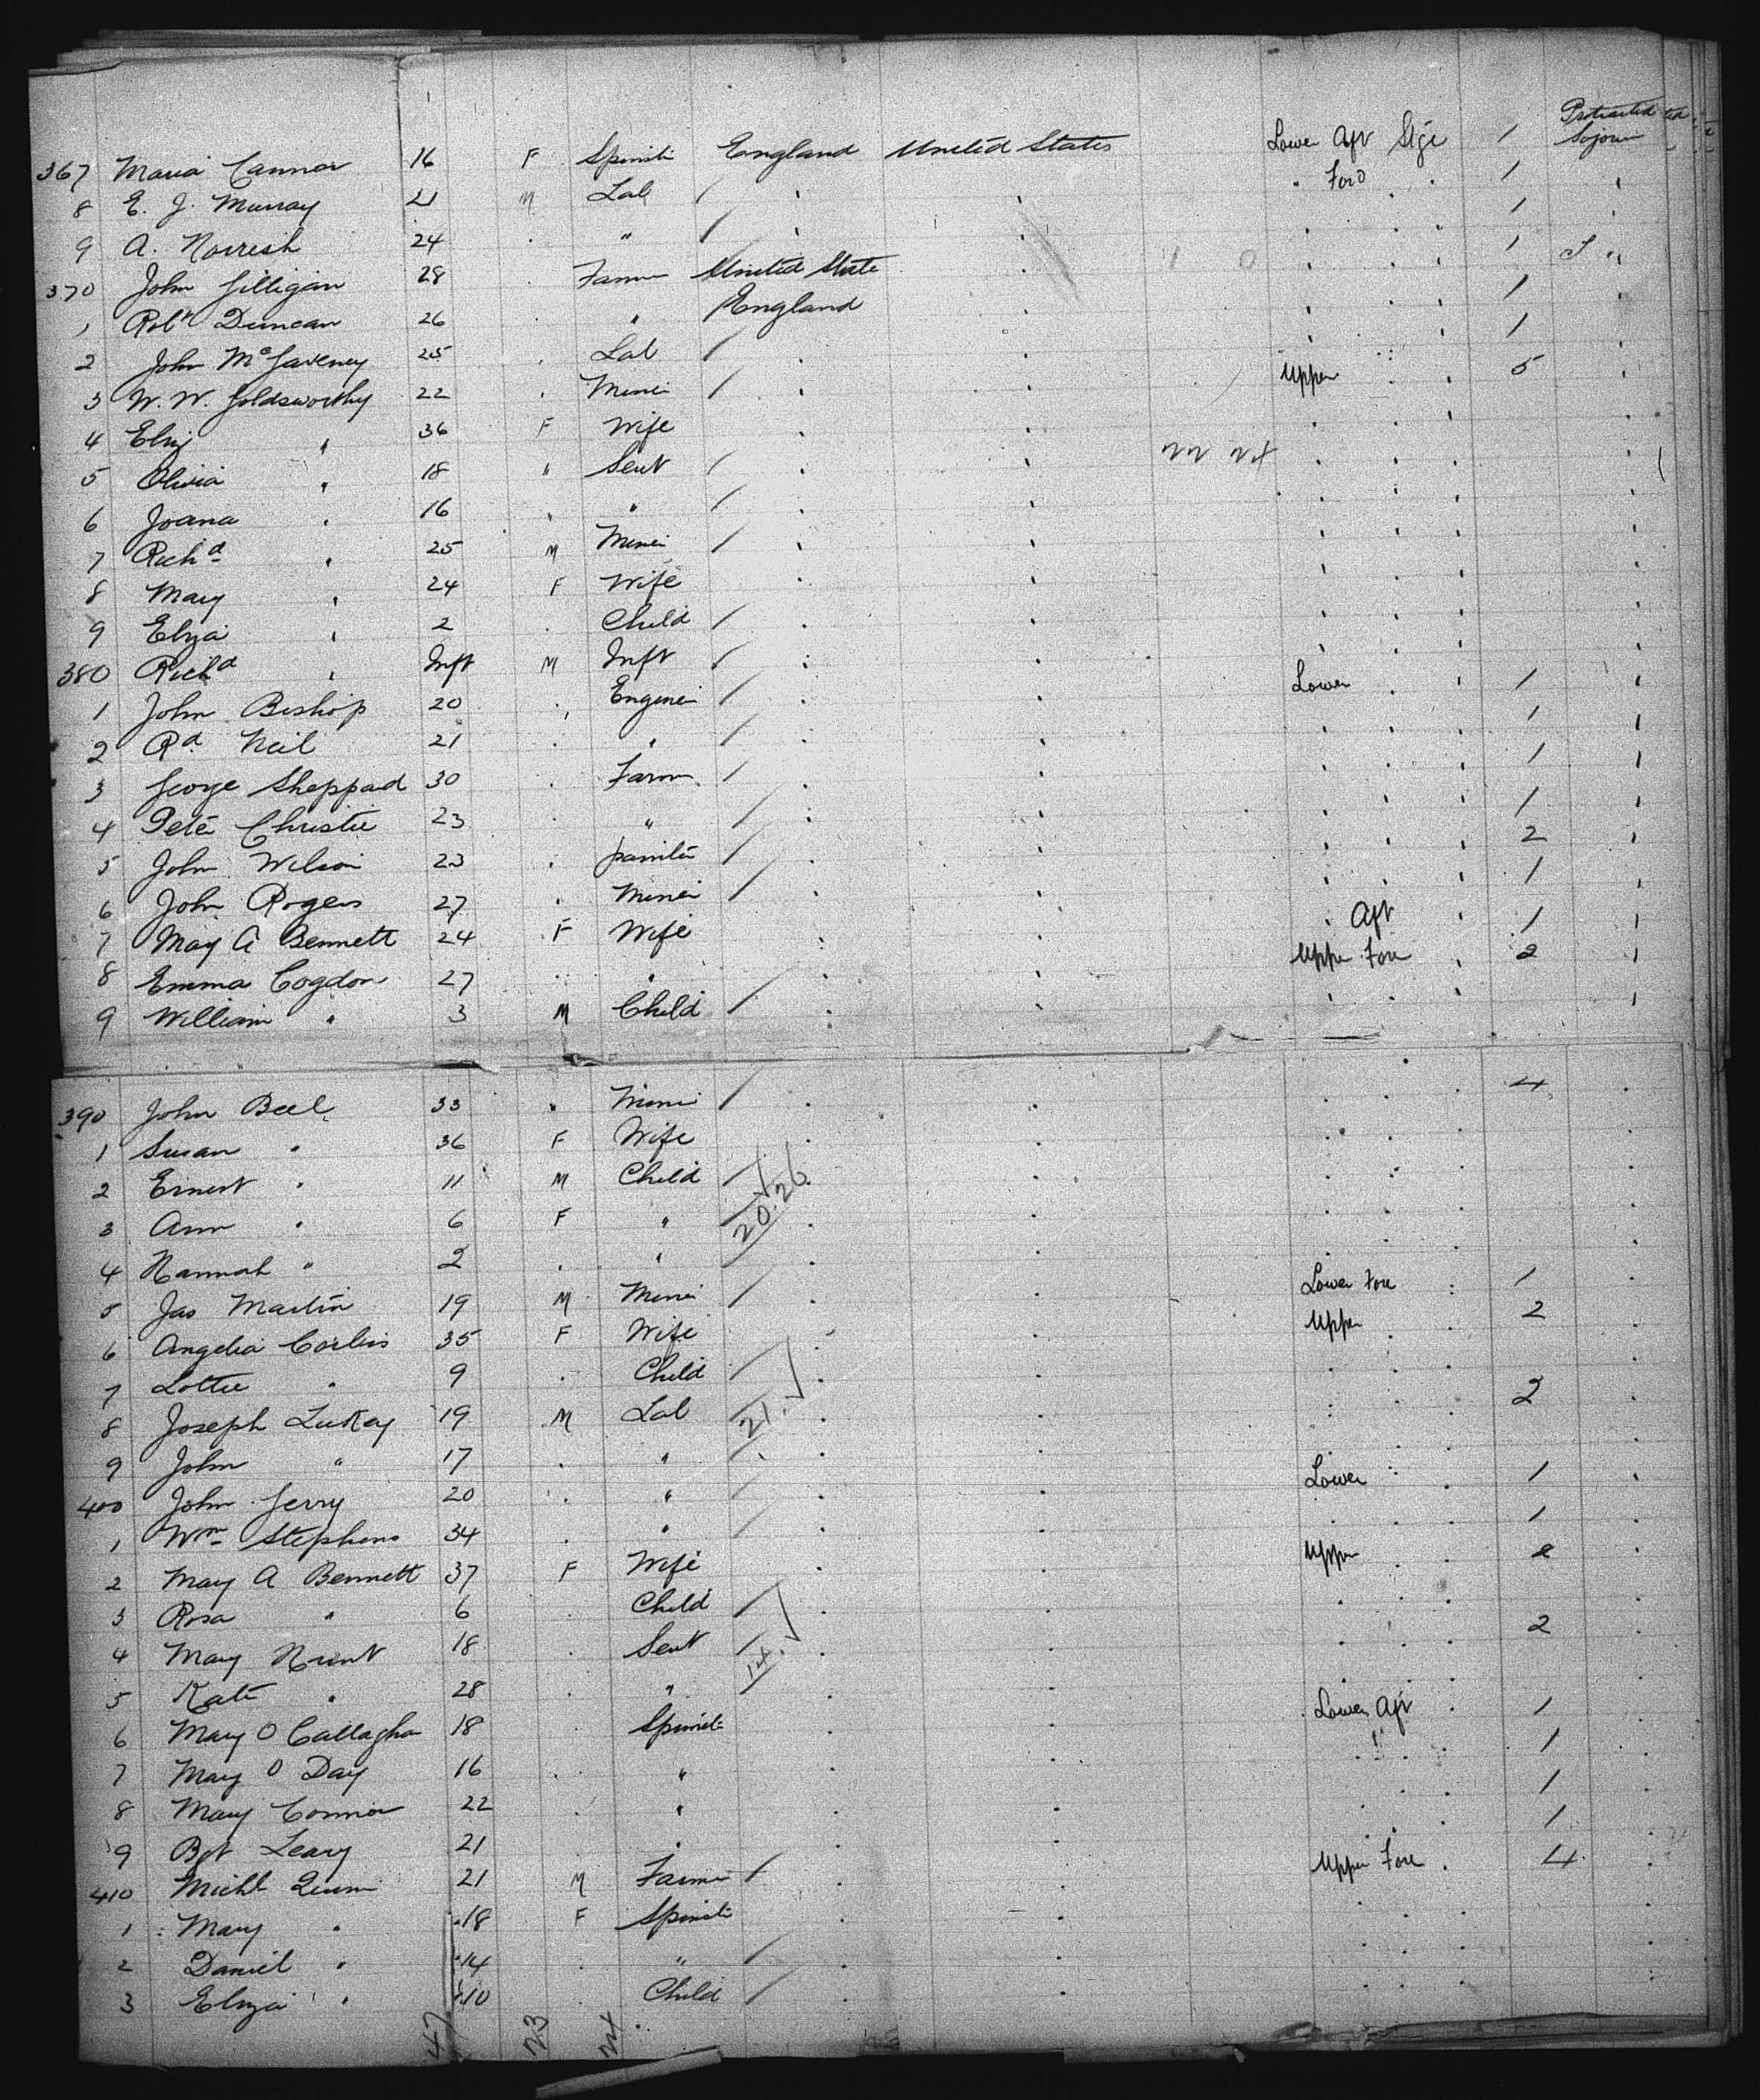 367 Maria Cannor 16 F Spinstr England United States Lower Aft Stge 1 Protracted Sojour
8 E. J. Murray 21 M Lab " Ford 1
9 A. Norrish 24 " 1
370 John Gilligan 28 Farmr United State 1
1 Robt Duncan 26 " England 1
2 John McGaveney 25 Lab 1
3 W. W. Goldsworthy 22 Miner Upper 5
4 Eliz " 36 F Wife
5 Olivia " 18 " Servt
6 Joana " 16 " "
7 Richd " 25 M Miner
8 Mary " 24 F Wife
9 Eliza " 2 Child
380 Richd " Inft M Inft
1 John Bishop 20 Engineer Lower 1
2 Rd Neil 21 " 1
3 George Sheppard 30 Farm 1
4 Peter Christie 23 " 1
5 John Wilson 23 painter 2
6 John Rogers 27 Miner 1
7 May A Bennett 24 F Wife Aft 1
8 Emma Cogdon 27 " Upper Fore 2
9 William " 3 M Child
390 John Beel 33 " Miner 4
1 Susan " 36 F Wife
2 Ernest " 11 M Child
3 Ann " 6 F " 20.26
4 Hannah " 2 "
5 Jas Martin 19 M Miner Lower Fore 1
6 Angelia Corlis 35 F Wife Upper 2
7 Lottie " 9 Child
8 Joseph LuKay 19 M Lab 21. 2
9 John " 17 "
400 John Gerry 20 " Lower 1
1 Wm Stephens 34 " 1
2 May A Bennett 37 F Wife Upper 2
3 Rosa " 6 Child
4 May Hunt 18 Servt 14. 2
5 Kate " 28 "
6 Mary O Callagha 18 Spinstr Lower Aft 1
7 May O Day 16 " " 1
8 Mary Connor 22 " 1
9 Bgt Leary 21 " 1
410 Michl Quinn 21 M Farmer Upper Fore 4
1 Mary " 18 F Spinstr
2 Daniel " 14 "
3 Eliza " 10 Child
47 23 24